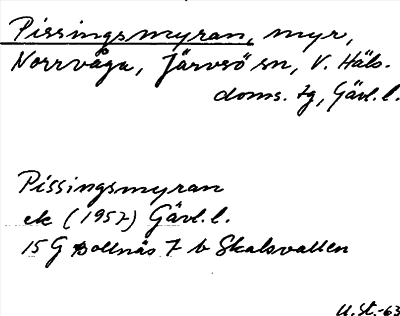 Pissingsmyran, myr,
Norrvåga, Järvsö sn, V. Häls.
doms. tg, Gävl. l.
Pissingsmyran
ek (1957) Gävl. l.
15 G Bollnäs 7 b Skalsvallen
U. St. -63